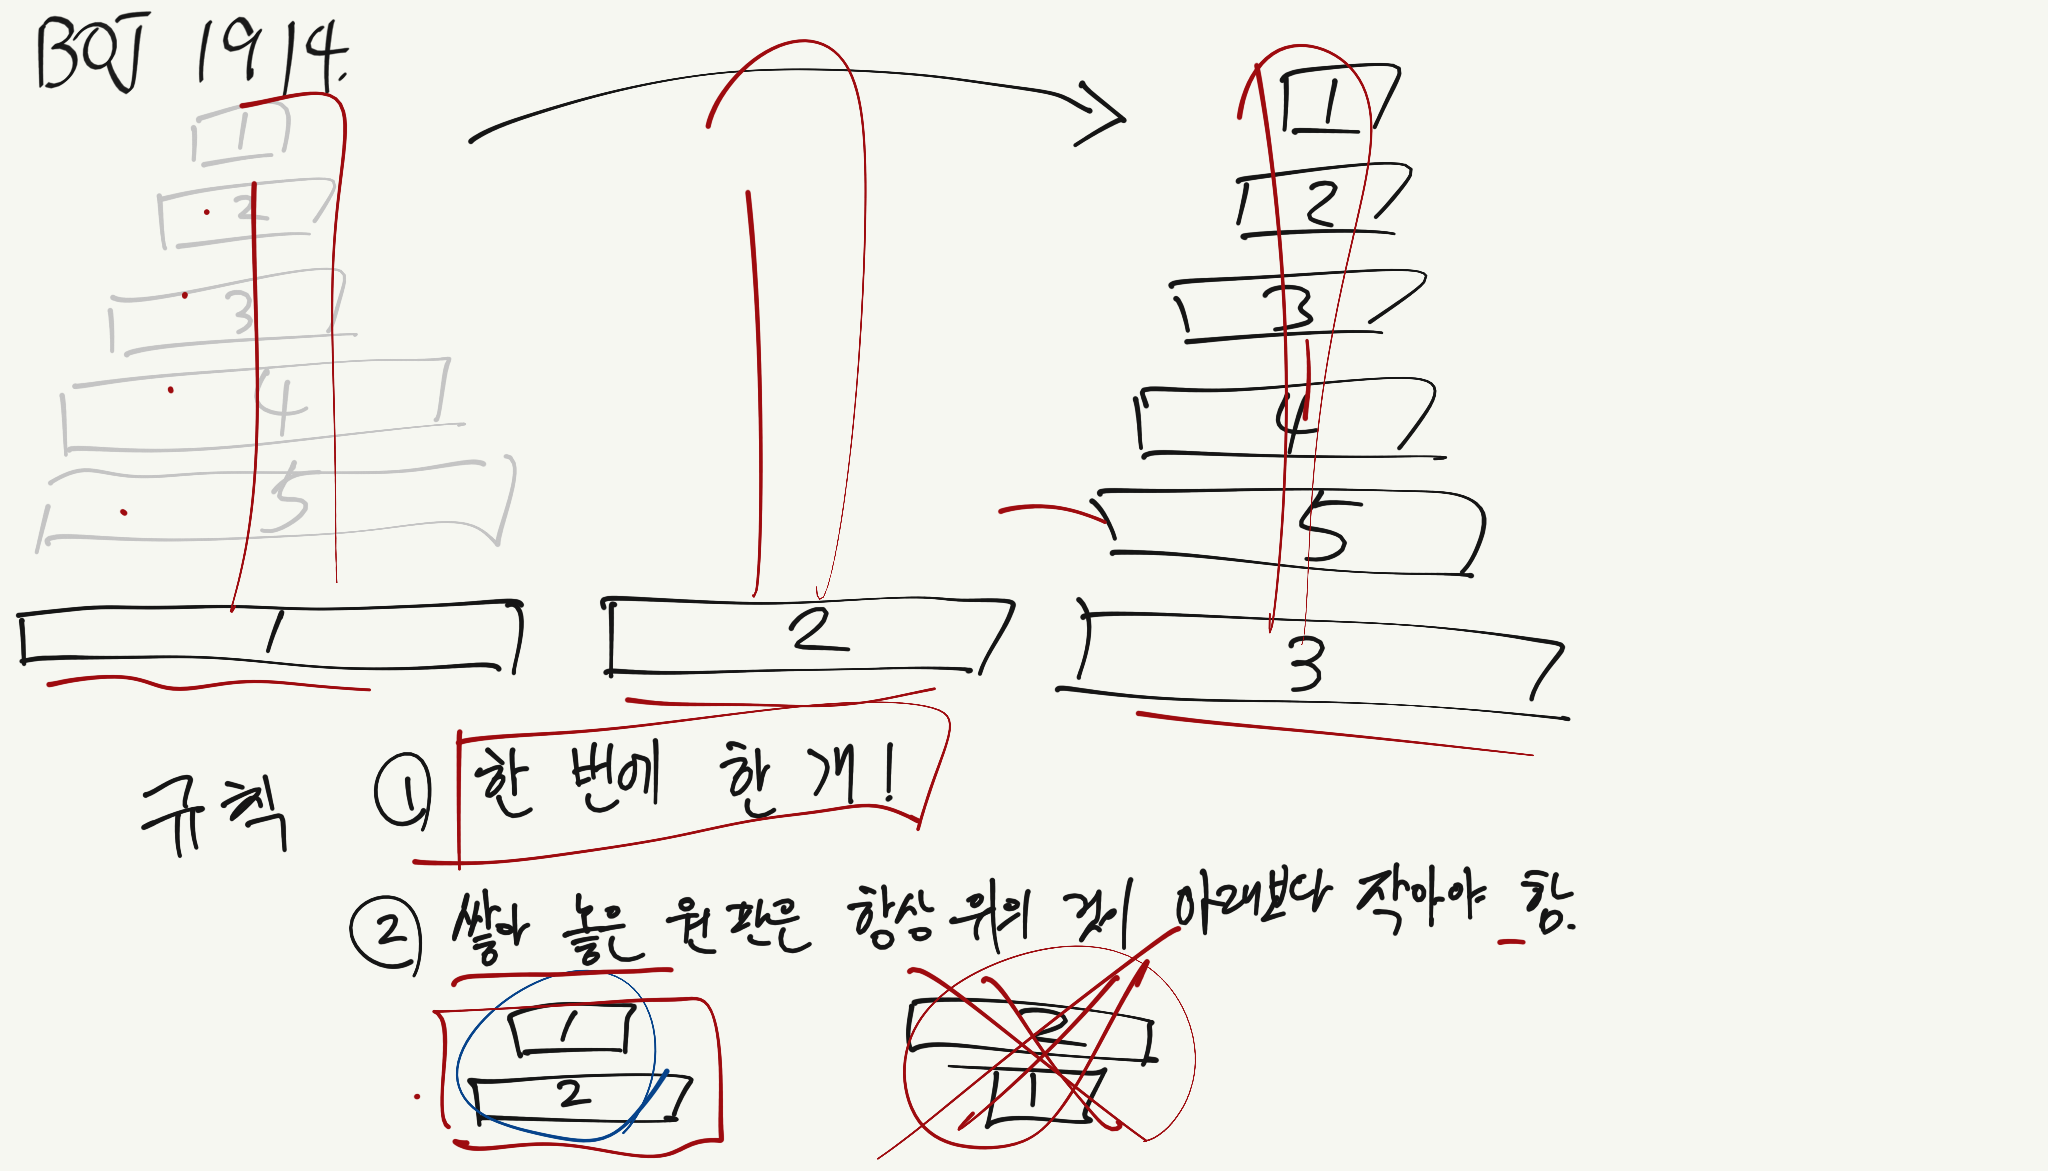 BOJ 1914.
1
2
3
4
5
1
2
3
4
5
1
2
3
규칙 ① 한 번에 한 개!
② 쌓아 놓은 원판은 항상 위의 것이 아래보다 작아야 함.
1
2
2
1